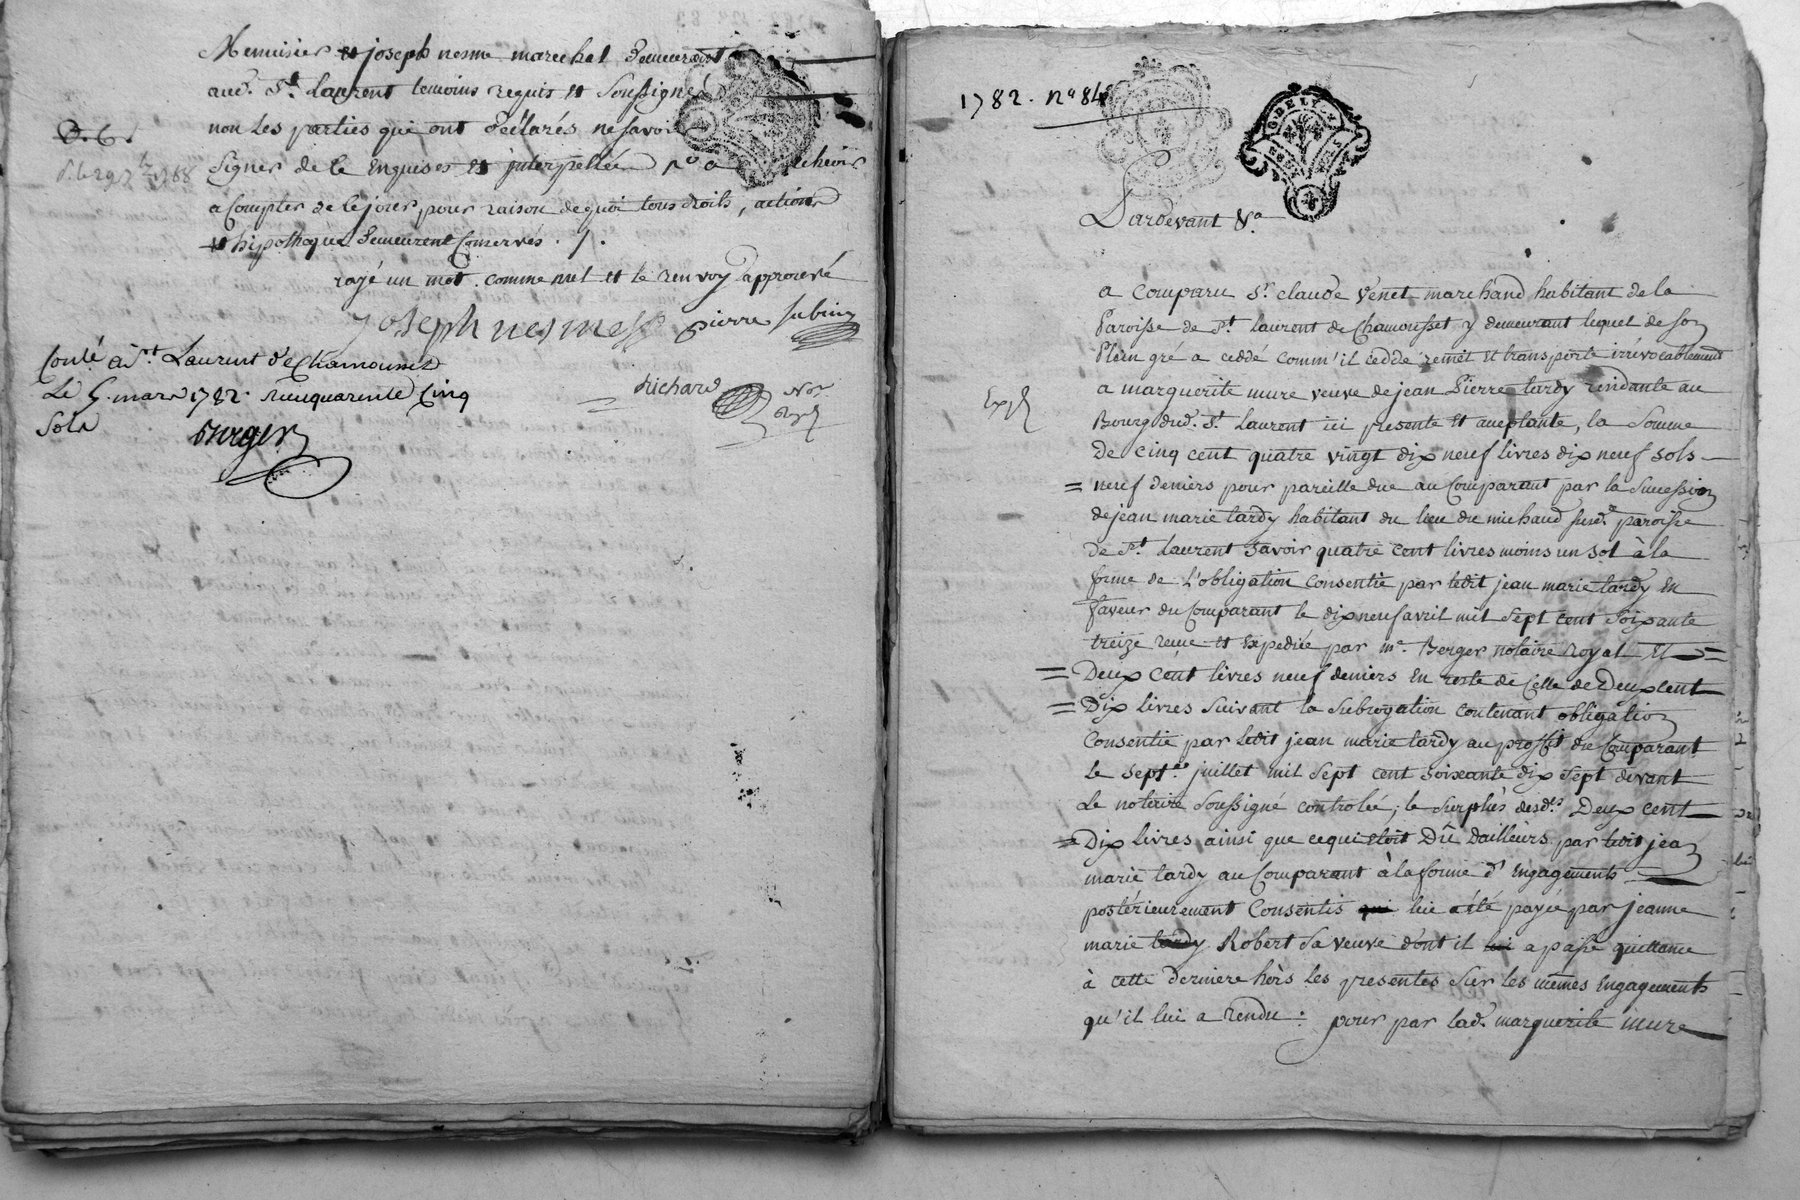 Menuisier et joseph nesme marechal demeurant
aud. St. Laurent temoins requis et soussignés
non les parties qui ont déclarés ne savoir
signer de ce Enquises et interpellée
a Compter de ce jour, pour raison de quoi tous droits, actions
et hipotheque demeurent Conservés ./.
rayé un mot comme nul et le renvoy approuvé
joseph nesme Pierre subrin
Conlé à St Laurent de Chamousset
Le 5 mars 1782. Reçu quarente Cinq
Sols
Berger
Richard Nre
Royl
1782. No 84
G. DE LYON
Pardevant &a
a comparu Sr. claude Venet marchand habitant de la
Paroisse de St. laurent de Chamousset y demeurant lequel de son
Plein gré a ceddé comm'il cedde remet et transporte irrévocablement
a marguerite mure veuve de jean Pierre tardy rendante au
Expd
Bourg dud. St. Laurent ici presente et aceptante, la Somme
De cinq cent quatre vingt dix neuf livres dix neuf sols
neuf deniers pour pareille due au Comparant par la Succession
de jean marie tardy habitant du lieu du michaud susd. paroisse
de St. Laurent savoir quatre cent livres moins un sol à la
forme de L'obligation consentie par ledit jean marie tardy En
faveur du Comparant le dix neuf avril mil sept cent soixante
treize reçue et Expediée par me. Berger notaire royal Et
Deux cent livres neuf deniers En reste de Celle de Deux cent
Dix livres suivant la subrogation contenant obligation
Consentie par ledit jean marie tardy au proffit du Comparant
le sept juillet mil sept cent soixante dix sept devant
Le notaire soussigné controlée; le surplus desdts. Deux cent
Dix livres ainsi que ce qui etoit Dû Dailleurs par ledit jean
marie tardy au Comparant à la forme d'Engagements
postérieurement Consentis qui lui a été payée par jeanne
marie tardy Robert sa veuve dont il lui a passé quittance
à cette derniere hors les presentes sur les mêmes Engagements
qu'il lui a rendu: pour par lad. marguerite mure